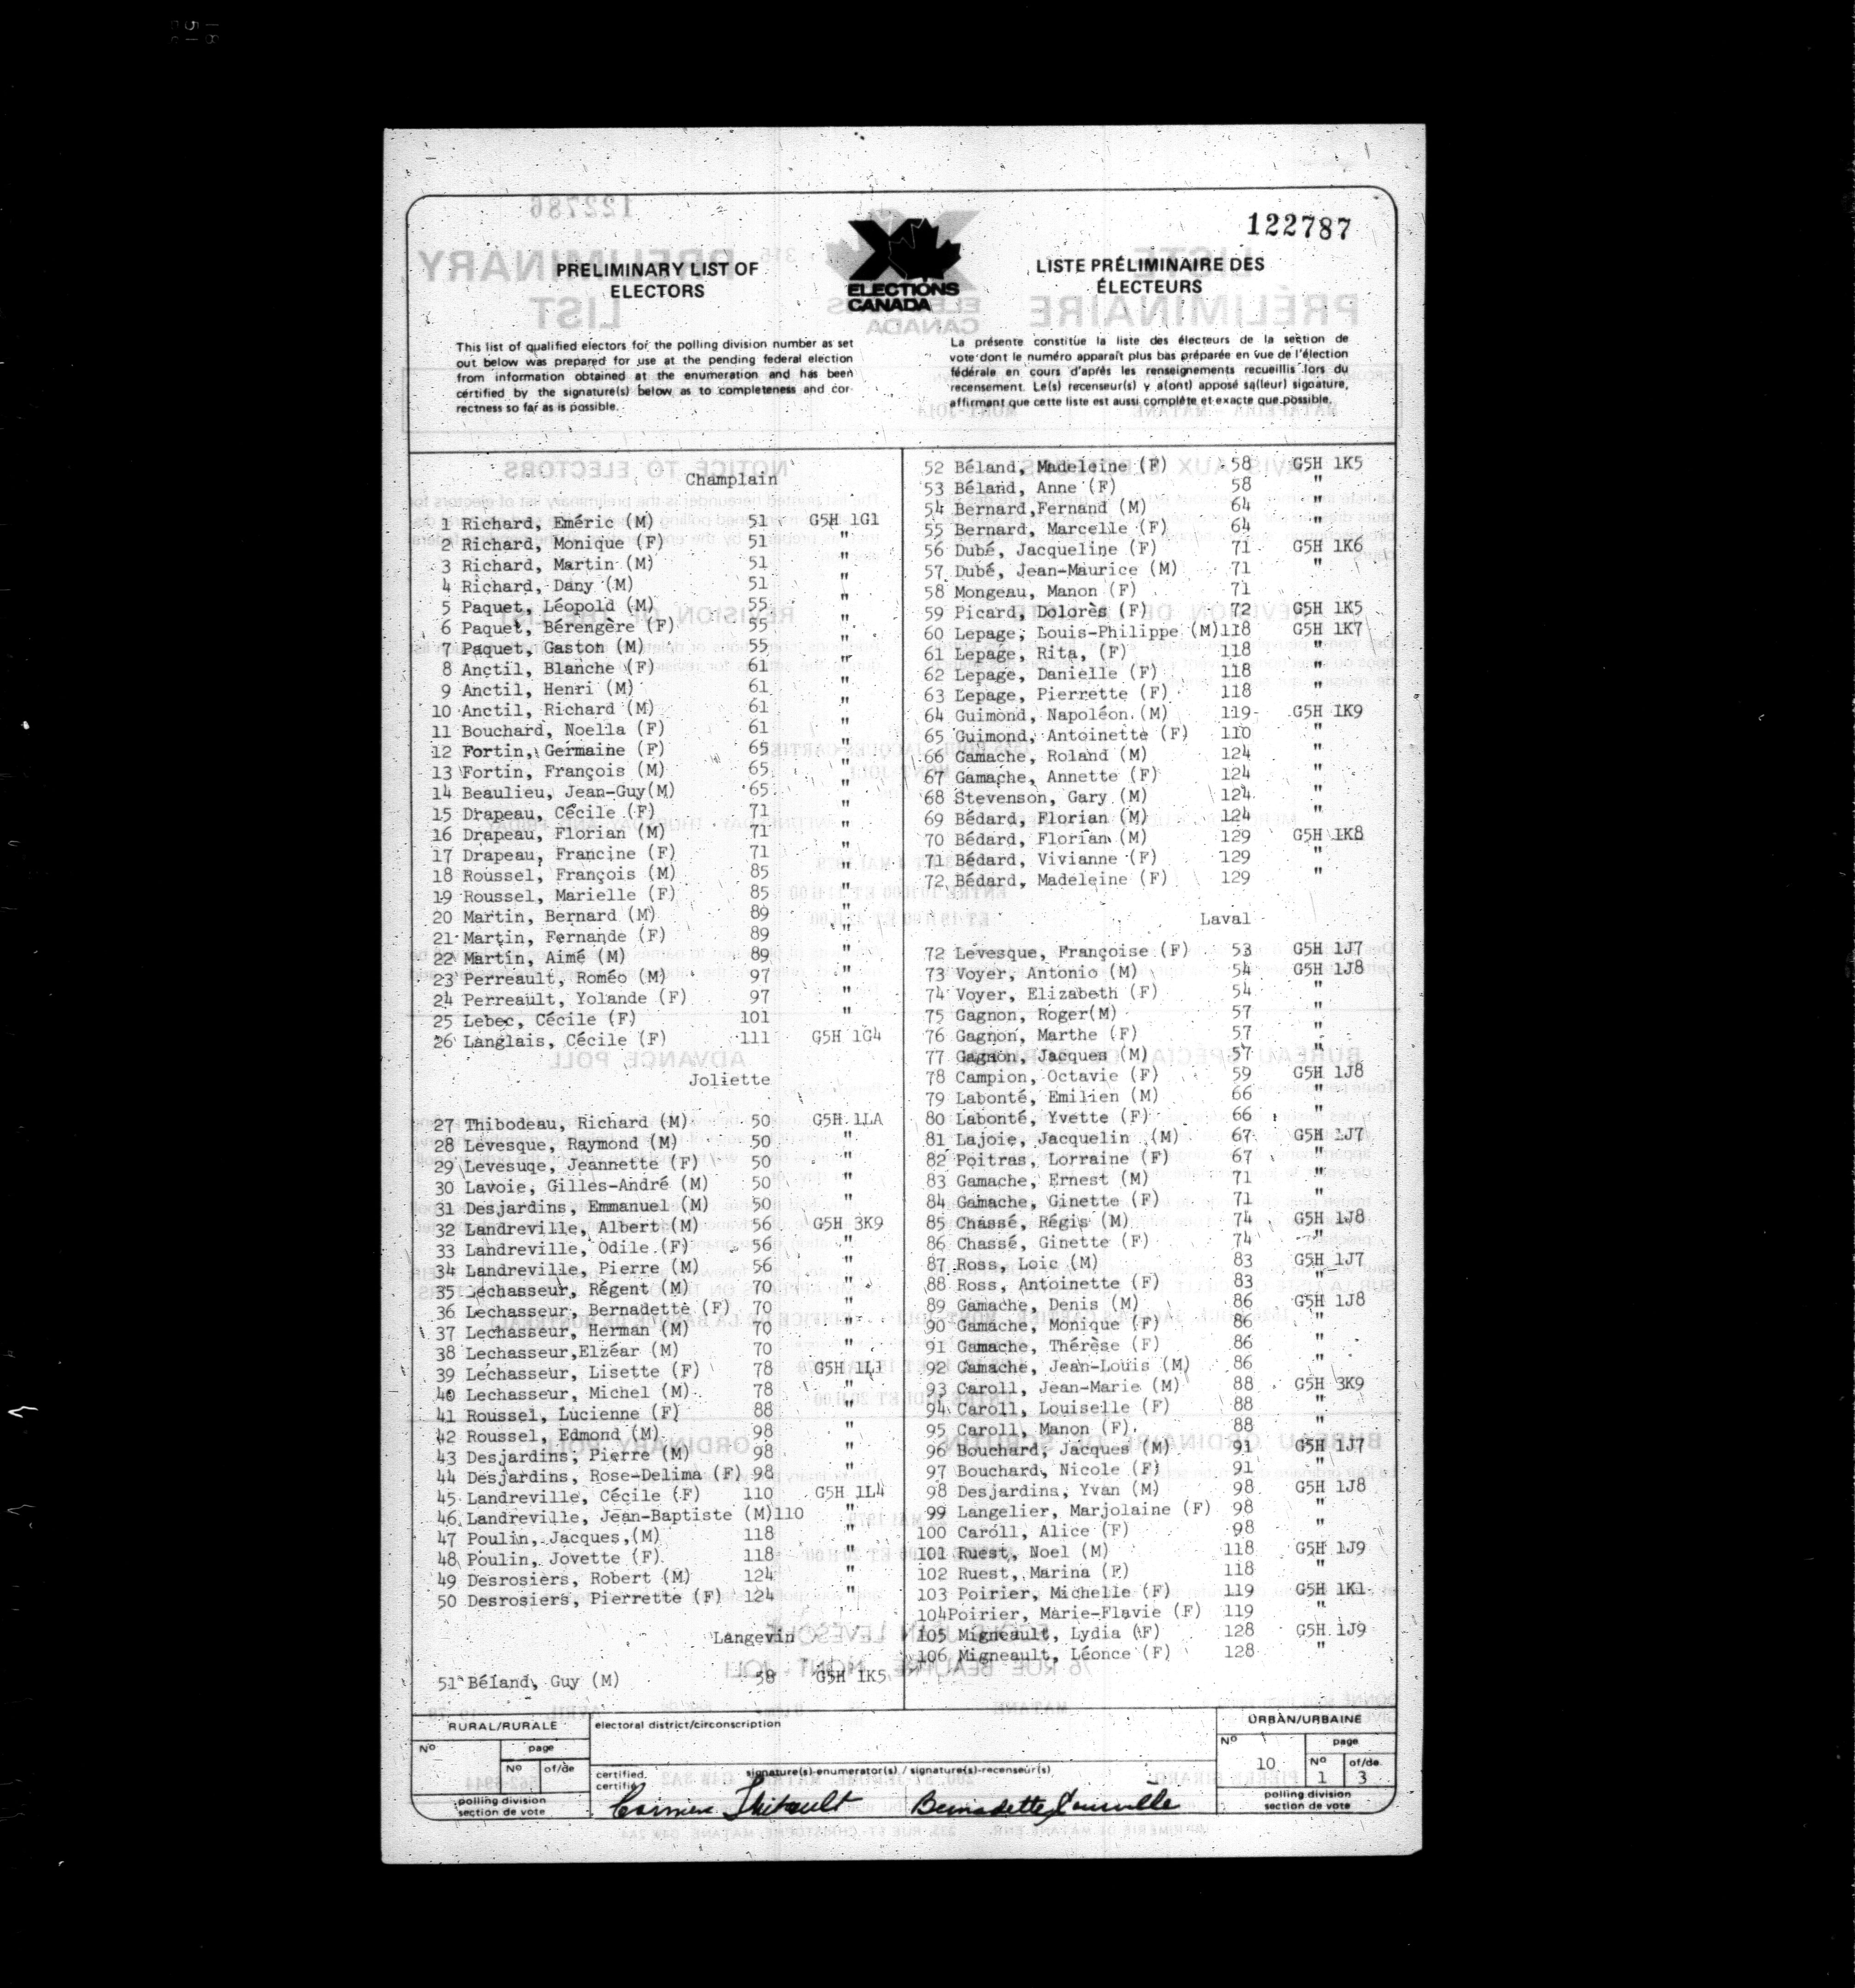 122787
PRELIMINARY LIST OF
ELECTORS
ELECTIONS
CANADA
LISTE PRÉLIMINAIRE DES
ÉLECTEURS
This list of qualified electors for the polling division number as set
out below was prepared for use at the pending federal election
from information obtained at the enumeration and has been
certified by the signature(s) below as to completeness and cor-
rectness so far as is possible.
La présente constitue la liste des électeurs de la section de
vote dont le numéro apparaît plus bas préparée en vue de l'élection
fédérale en cours d'après les renseignements recueillis lors du
recensement. Le(s) recenseur(s) y a(ont) apposé sa(leur) signature,
affirmant que cette liste est aussi complète et exacte que possible.
Champlain
1 Richard, Eméric (M) 51 G5H 1G1
2 Richard, Monique (F) 51 "
3 Richard, Martin (M) 51 "
4 Richard, Dany (M) 51 "
5 Paquet, Léopold (M) 55 "
6 Paquet, Bérengère (F) 55 "
7 Paquet, Gaston (M) 55 "
8 Anctil, Blanche (F) 61 "
9 Anctil, Henri (M) 61 "
10 Anctil, Richard (M) 61 "
11 Bouchard, Noella (F) 61 "
12 Fortin, Germaine (F) 65 "
13 Fortin, François (M) 65 "
14 Beaulieu, Jean-Guy(M) 65 "
15 Drapeau, Cécile (F) 71 "
16 Drapeau, Florian (M) 71 "
17 Drapeau, Francine (F) 71 "
18 Roussel, François (M) 85 "
19 Roussel, Marielle (F) 85 "
20 Martin, Bernard (M) 89 "
21 Martin, Fernande (F) 89 "
22 Martin, Aimé (M) 89 "
23 Perreault, Roméo (M) 97 "
24 Perreault, Yolande (F) 97 "
25 Lebec, Cécile (F) 101 "
26 Langlais, Cécile (F) 111 G5H 1G4
Joliette
27 Thibodeau, Richard (M) 50 G5H 1LA
28 Levesque, Raymond (M) 50 "
29 Levesuqe, Jeannette (F) 50 "
30 Lavoie, Gilles-André (M) 50 "
31 Desjardins, Emmanuel (M) 50 "
32 Landreville, Albert (M) 56 G5H 3K9
33 Landreville, Odile (F) 56 "
34 Landreville, Pierre (M) 56 "
35 Lechasseur, Régent (M) 70 "
36 Lechasseur, Bernadette (F) 70 "
37 Lechasseur, Herman (M) 70 "
38 Lechasseur,Elzéar (M) 70 "
39 Lechasseur, Lisette (F) 78 G5H 1L1
40 Lechasseur, Michel (M) 78 "
41 Roussel, Lucienne (F) 88 "
42 Roussel, Edmond (M) 98 "
43 Desjardins, Pierre (M) 98 "
44 Desjardins, Rose-Delima (F) 98 "
45 Landreville, Cécile (F) 110 G5H 1L4
46 Landreville, Jean-Baptiste (M)110 "
47 Poulin, Jacques,(M) 118 "
48 Poulin, Jovette (F) 118 "
49 Desrosiers, Robert (M) 124 "
50 Desrosiers, Pierrette (F) 124 "
Langevin
51 Béland, Guy (M) 58 G5H 1K5
52 Béland, Madeleine (F) 58 G5H 1K5
53 Béland, Anne (F) 58 "
54 Bernard,Fernand (M) 64 "
55 Bernard, Marcelle (F) 64 "
56 Dubé, Jacqueline (F) 71 G5H 1K6
57 Dubé, Jean-Maurice (M) 71 "
58 Mongeau, Manon (F) 71
59 Picard, Dolorès (F) 72 G5H 1K5
60 Lepage, Louis-Philippe (M)118 G5H 1K7
61 Lepage, Rita, (F) 118 "
62 Lepage, Danielle (F) 118 "
63 Lepage, Pierrette (F) 118 "
64 Guimond, Napoléon (M) 119 G5H 1K9
65 Guimond, Antoinette (F) 110 "
66 Gamache, Roland (M) 124 "
67 Gamache, Annette (F) 124 "
68 Stevenson, Gary (M) 124 "
69 Bédard, Florian (M) 124 "
70 Bédard, Florian (M) 129 G5H 1K8
71 Bédard, Vivianne (F) 129 "
72 Bédard, Madeleine (F) 129 "
Laval
72 Levesque, Françoise (F) 53 G5H 1J7
73 Voyer, Antonio (M) 54 G5H 1J8
74 Voyer, Elizabeth (F) 54 "
75 Gagnon, Roger(M) 57 "
76 Gagnon, Marthe (F) 57 "
77 Gagnon, Jacques (M) 57 "
78 Campion, Octavie (F) 59 G5H 1J8
79 Labonté, Emilien (M) 66 "
80 Labonté, Yvette (F) 66 "
81 Lajoie, Jacquelin (M) 67 G5H 1J7
82 Poitras, Lorraine (F) 67 "
83 Gamache, Ernest (M) 71 "
84 Gamache, Ginette (F) 71 "
85 Chassé, Régis (M) 74 G5H 1J8
86 Chassé, Ginette (F) 74 "
87 Ross, Loic (M) 83 G5H 1J7
88 Ross, Antoinette (F) 83 "
89 Gamache, Denis (M) 86 G5H 1J8
90 Gamache, Monique (F) 86 "
91 Gamache, Thérèse (F) 86 "
92 Gamache, Jean-Louis (M) 86 "
93 Caroll, Jean-Marie (M) 88 G5H 3K9
94 Caroll, Louiselle (F) 88 "
95 Caroll, Manon (F) 88 "
96 Bouchard, Jacques (M) 91 G5H 1J7
97 Bouchard, Nicole (F) 91 "
98 Desjardins, Yvan (M) 98 G5H 1J8
99 Langelier, Marjolaine (F) 98 "
100 Caroll, Alice (F) 98 "
101 Ruest, Noel (M) 118 G5H 1J9
102 Ruest, Marina (F) 118 "
103 Poirier, Michelle (F) 119 G5H 1K1
104Poirier, Marie-Flavie (F) 119 "
105 Migneault, Lydia (F) 128 G5H 1J9
106 Migneault, Léonce (F) 128 "
RURAL/RURALE
No
page
No of/de
polling division
section de vote
electoral district/circonscription
certified
certifié
signature(s)-enumerator(s) / signature(s)-recenseur(s)
Carmen Thibault
Bernadette
URBAN/URBAINE
No
10
page
No of/de
1 3
polling division
section de vote